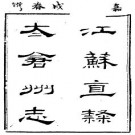 嘉
江蘇直隸
太倉州志